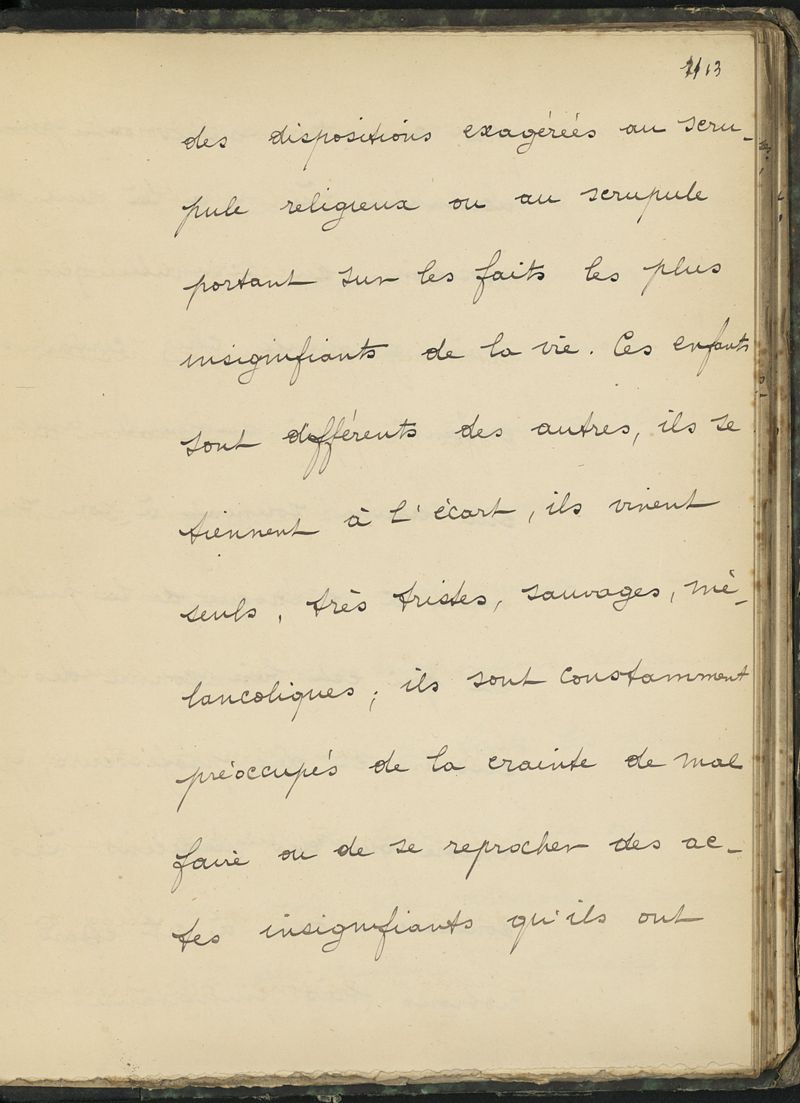 13
des dispositions exagéréés au scru-
pule religieux ou au scrupule
portant sur les faits les plus
insignifiants de la vie. Ces enfants
sont différents des autres, ils se
tiennent à l'écart, ils vivent
seuls, très tristes, sauvages, mé-
lancoliques; ils sont constamment
préoccupés de la crainte de mal
faire ou de se reprocher des ac-
tes insignifiants qu'ils ont